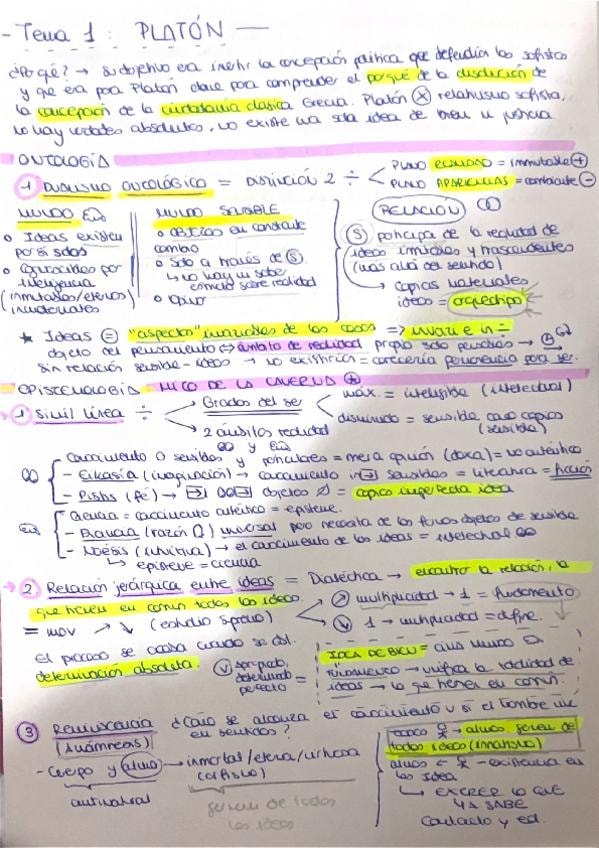 - Tema 1: PLATÓN —
¿Por qué? → Su objetivo era invertir la concepción política que defendían los sofistas
y que era para Platón clave para comprender el porqué de la disolución de
la concepción de la ciudadanía clásica Grecia. Platón ⊗ relativismo sofista,
no hay verdades absolutas, no existe una sola idea de bien ni justicia.
ONTOLOGÍA
1 DUALISMO ONTOLÓGICO = DISTINCIÓN 2 ÷
PLANO REALIDAD = inmutable ⊕
PLANO APARIENCIAS = cambiante ⊖
MUNDO
o Ideas existen
por sí solas
o Conocidas por
inteligencia
(inmutables/eternos)
inmateriales
MUNDO SENSIBLE
o objetos en constante
cambio
o Solo a través de Ⓢ.
↳ no hay un saber
sobre realidad
RELACIÓN
Ⓢ participa de la realidad de
ideas inmutables y trascendentes
(más allá del sentido)
↳ copias materiales
ideas = arquetipo
★ Ideas ⊜ "aspectos" invariables de las cosas => invari e in ÷
objeto del pensamiento ⇔ ámbito de realidad propia solo pensarlas →
sin relación sensible - ideas → no existirían = carecería permanencia para ser.
EPISTEMOLOGÍA MITO DE LA CAVERNA ⊕
1 Símil línea ÷
Grados del ser
máx. = inteligible (intelectual)
disminuido = sensible como copias
(sensible)
2 ámbitos realidad
y
Conocimiento o sentidos y particulares = mera opinión (doxa) = no auténtico
- Eikasía (imaginación) → conocimiento sensibles = literatura = ficción
- Pistis (fe) → objetos = copia imperfecta idea
Ciencia = conocimiento auténtico = episteme.
- Dianoia (razón) universal pero necesita de los objetos de sensible
- Noésis (intuitiva) → el conocimiento de las ideas = intelectual
↳ episteme = ciencia
→ 2 Relación jerárquica entre ideas = Dialéctica → encontrar la relación, lo
que tienen en común todas las ideas.
multiplicidad → 1 = fundamento
1 → multiplicidad = define.
= mov ↗ ↘
El proceso se acaba cuando se da
determinación absoluta.
determinado
perfecto =
IDEA DE BIEN = mundo
fundamento → unifica la totalidad de
ideas → lo que tienen en común.
3 Reminiscencia
(Anámnesis)
¿Cómo se alcanza el conocimiento si el hombre vive
en sentidos?
- Cuerpo y alma → inmortal/eterna/
(orfismo)
antinatural
tienen de todas
las ideas
→ almas tienen de
todas ideas (innatismo)
almas - existencia en
las Idea
↳ EXTRAER LO QUE
YA SABE
Contacto y ed.